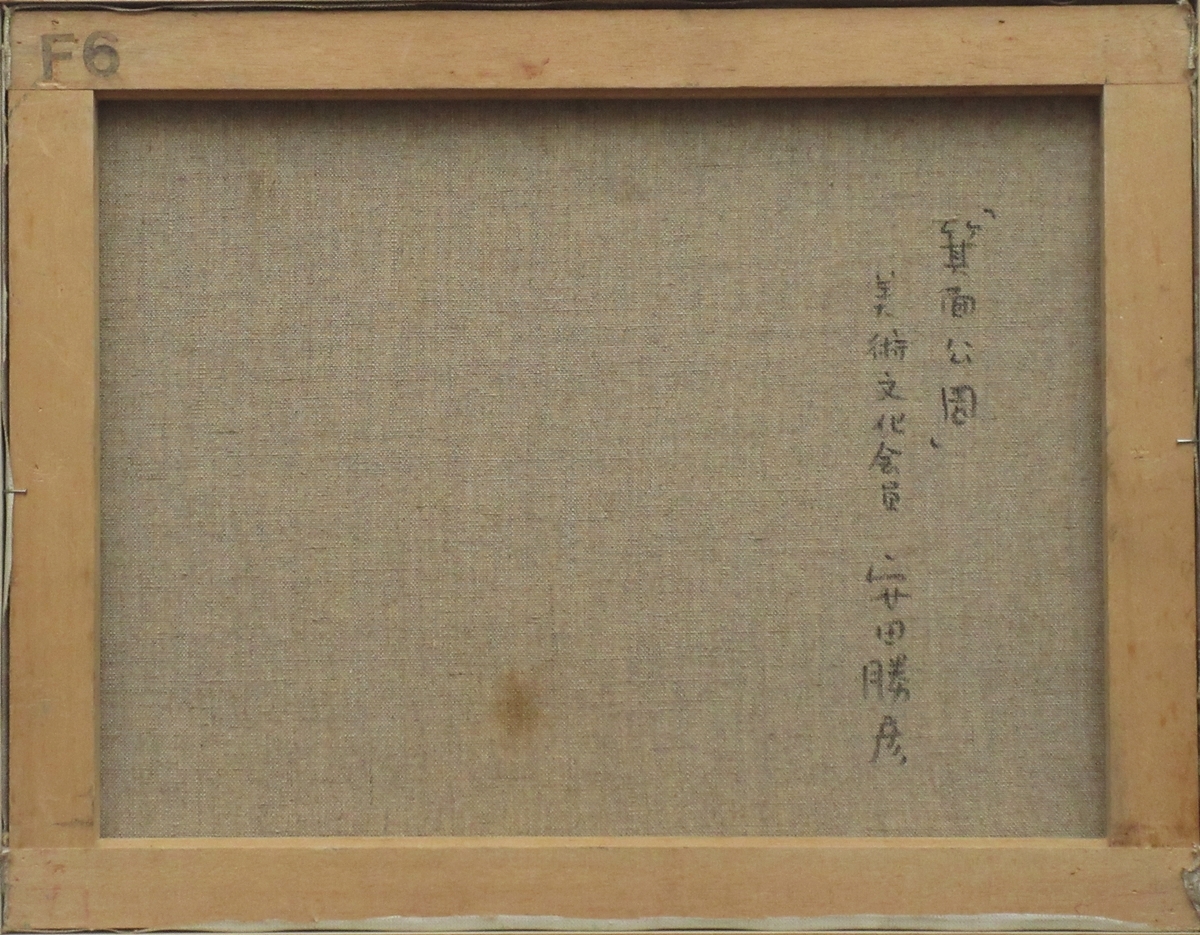 F6
"箕面公園"
美術文化会員 安田勝彦